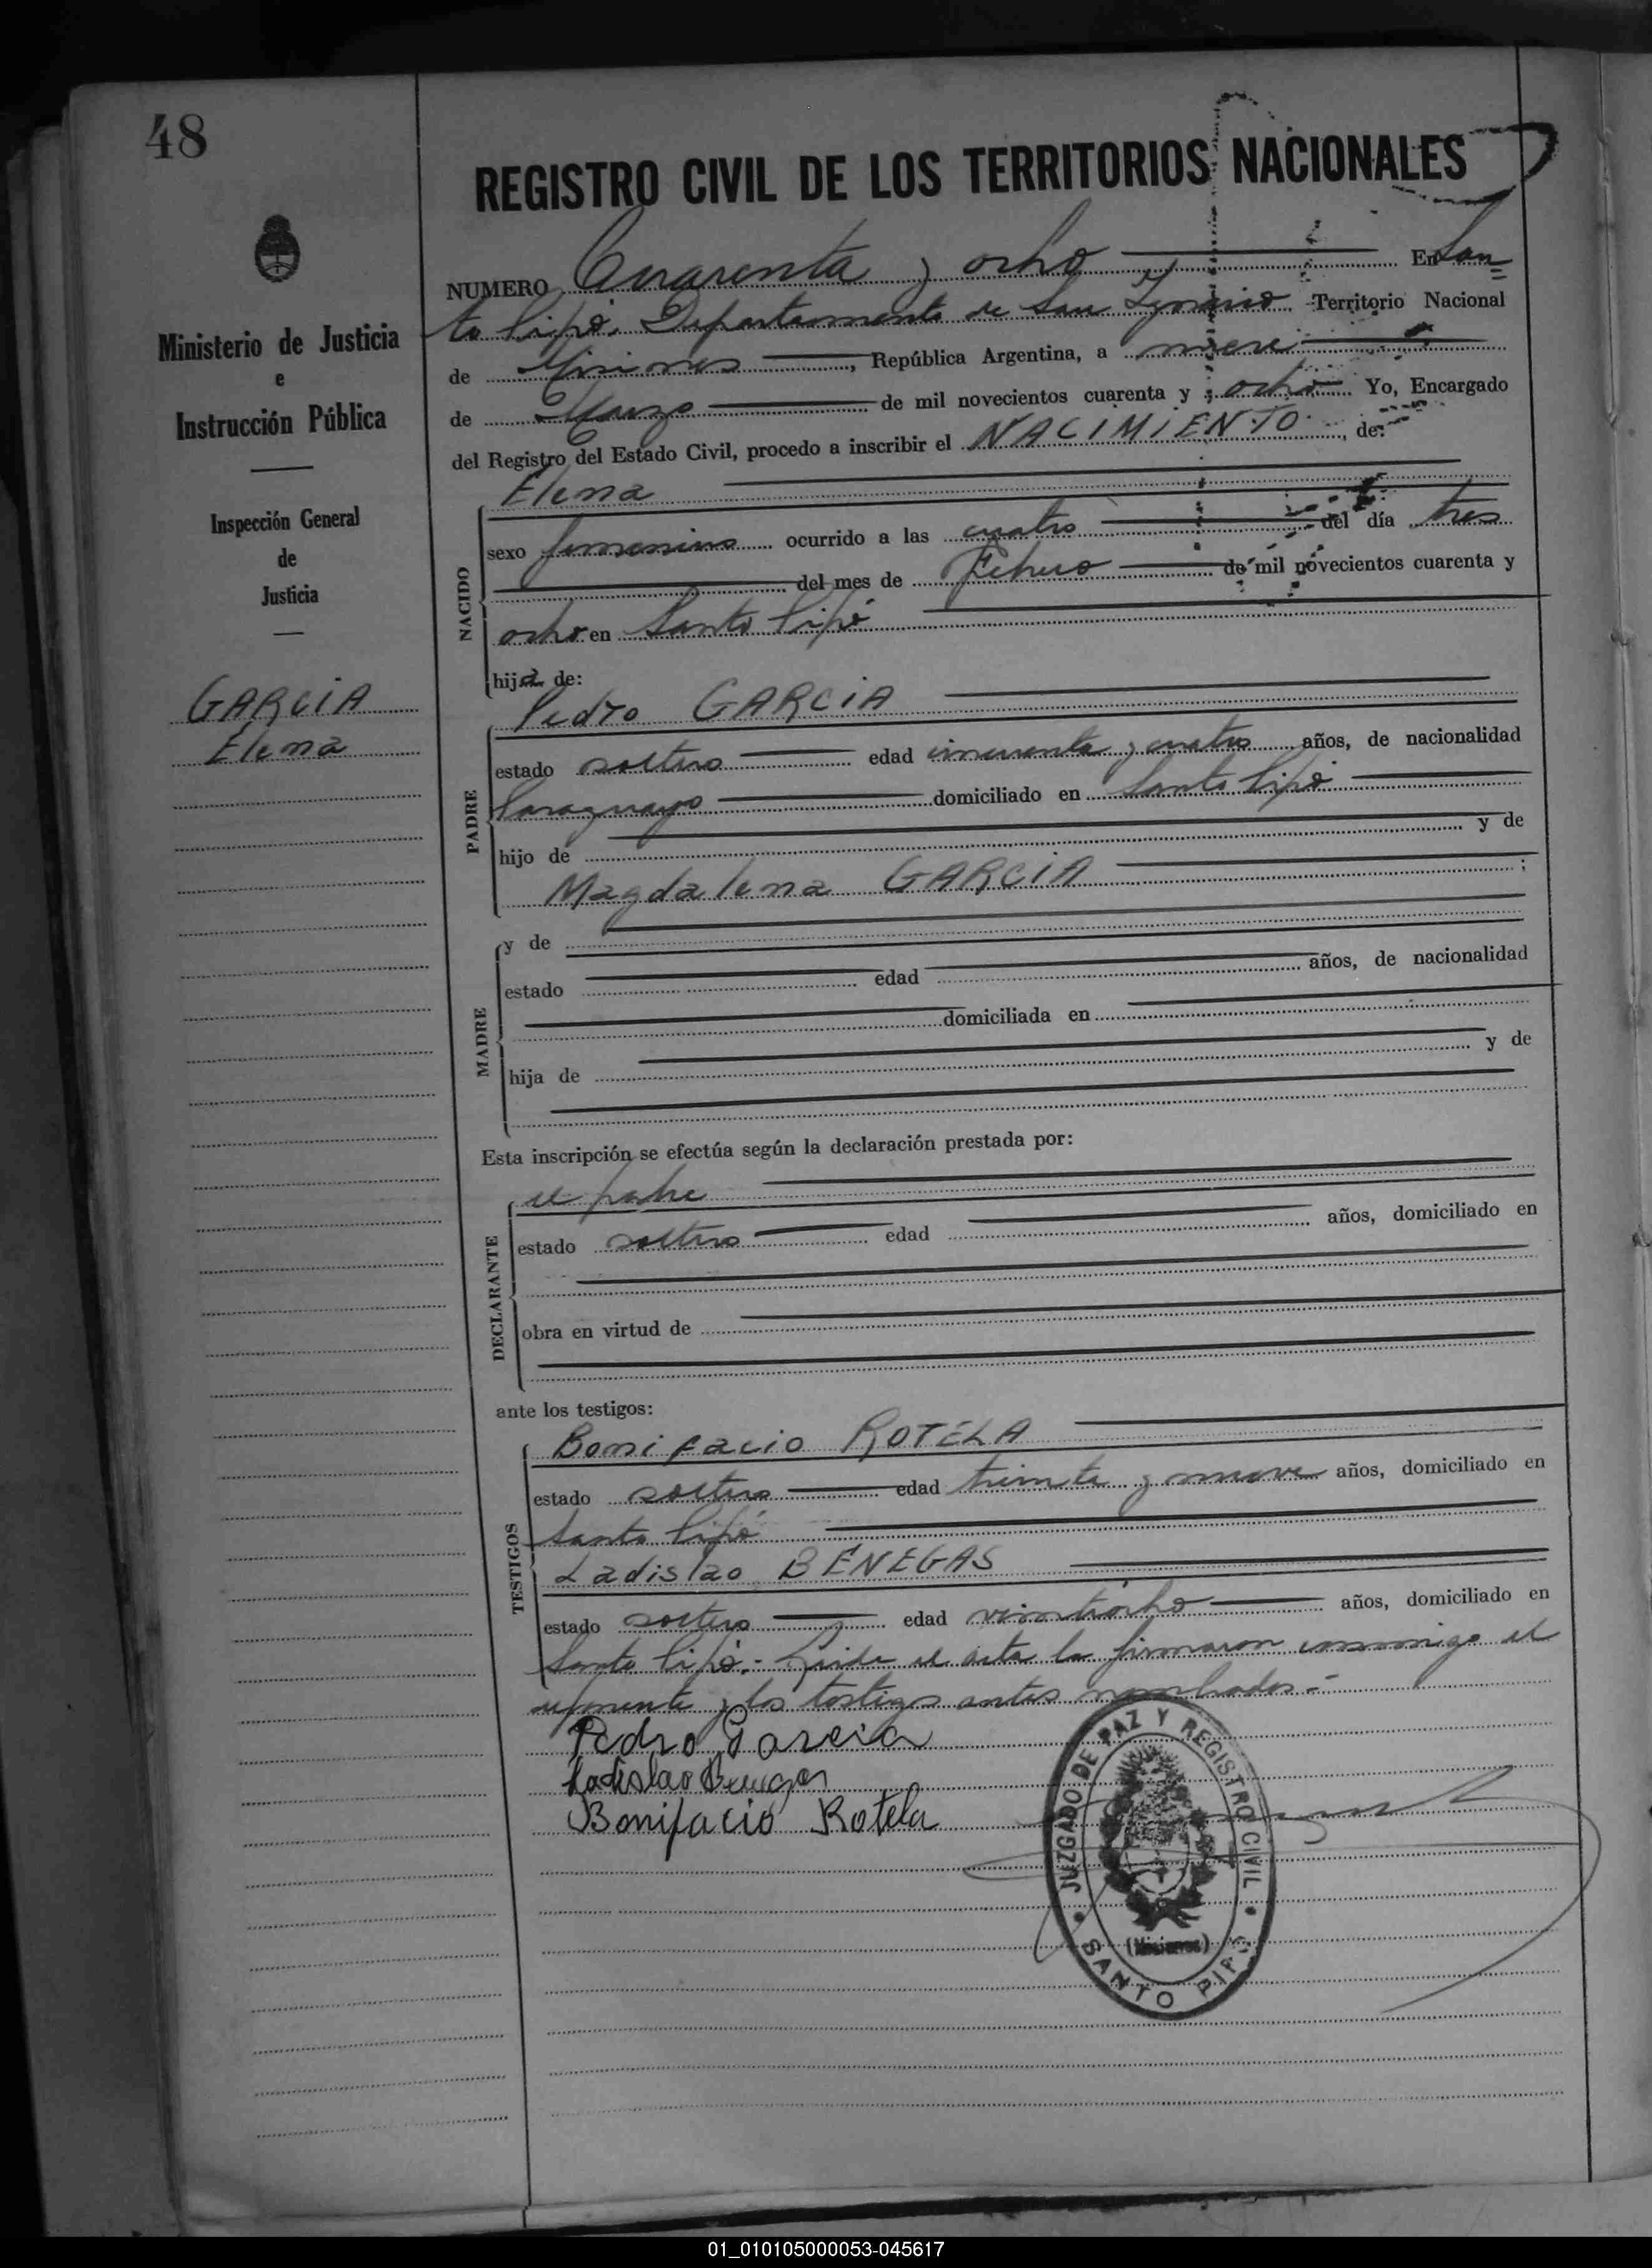 48
REGISTRO CIVIL DE LOS TERRITORIOS NACIONALES
Ministerio de Justicia
e
Instrucción Pública
Inspección General
de
Justicia
GARCIA
Elena
NUMERO Cuarenta y ocho En San=
to Pipó, Departamento de San Ignacio Territorio Nacional
de Misiones, República Argentina, a nueve
de Marzo de mil novecientos cuarenta y ocho Yo, Encargado
del Registro del Estado Civil, procedo a inscribir el NACIMIENTO, de:
NACIDO
Elena
sexo femenino ocurrido a las cuatro del día tres
del mes de Febrero de mil novecientos cuarenta y
ocho en Santo Pipó
hija de:
PADRE
Pedro GARCIA
estado soltero edad cincuenta y cuatro años, de nacionalidad
Paraguayo domiciliado en Santo Pipó
hijo de y de
Magdalena GARCIA ;
MADRE
y de
estado edad años, de nacionalidad
domiciliada en
hija de y de
Esta inscripción se efectúa según la declaración prestada por:
DECLARANTE
el padre
estado soltero edad años, domiciliado en
obra en virtud de
ante los testigos:
TESTIGOS
Bonifacio ROTELA
estado soltero edad treinta y nueve años, domiciliado en
Santo Pipó
Ladislao BENEGAS
estado soltero edad veintiocho años, domiciliado en
Santo Pipó.- Leida el acta la firmaron conmigo el
exponente y los testigos antes nombrados.-
Pedro Garcia
Ladislao Benegas
Bonifacio Rotela
JUZGADO DE PAZ Y REGISTRO CIVIL
(Misiones)
SANTO PIPÓ
01_010105000053-045617